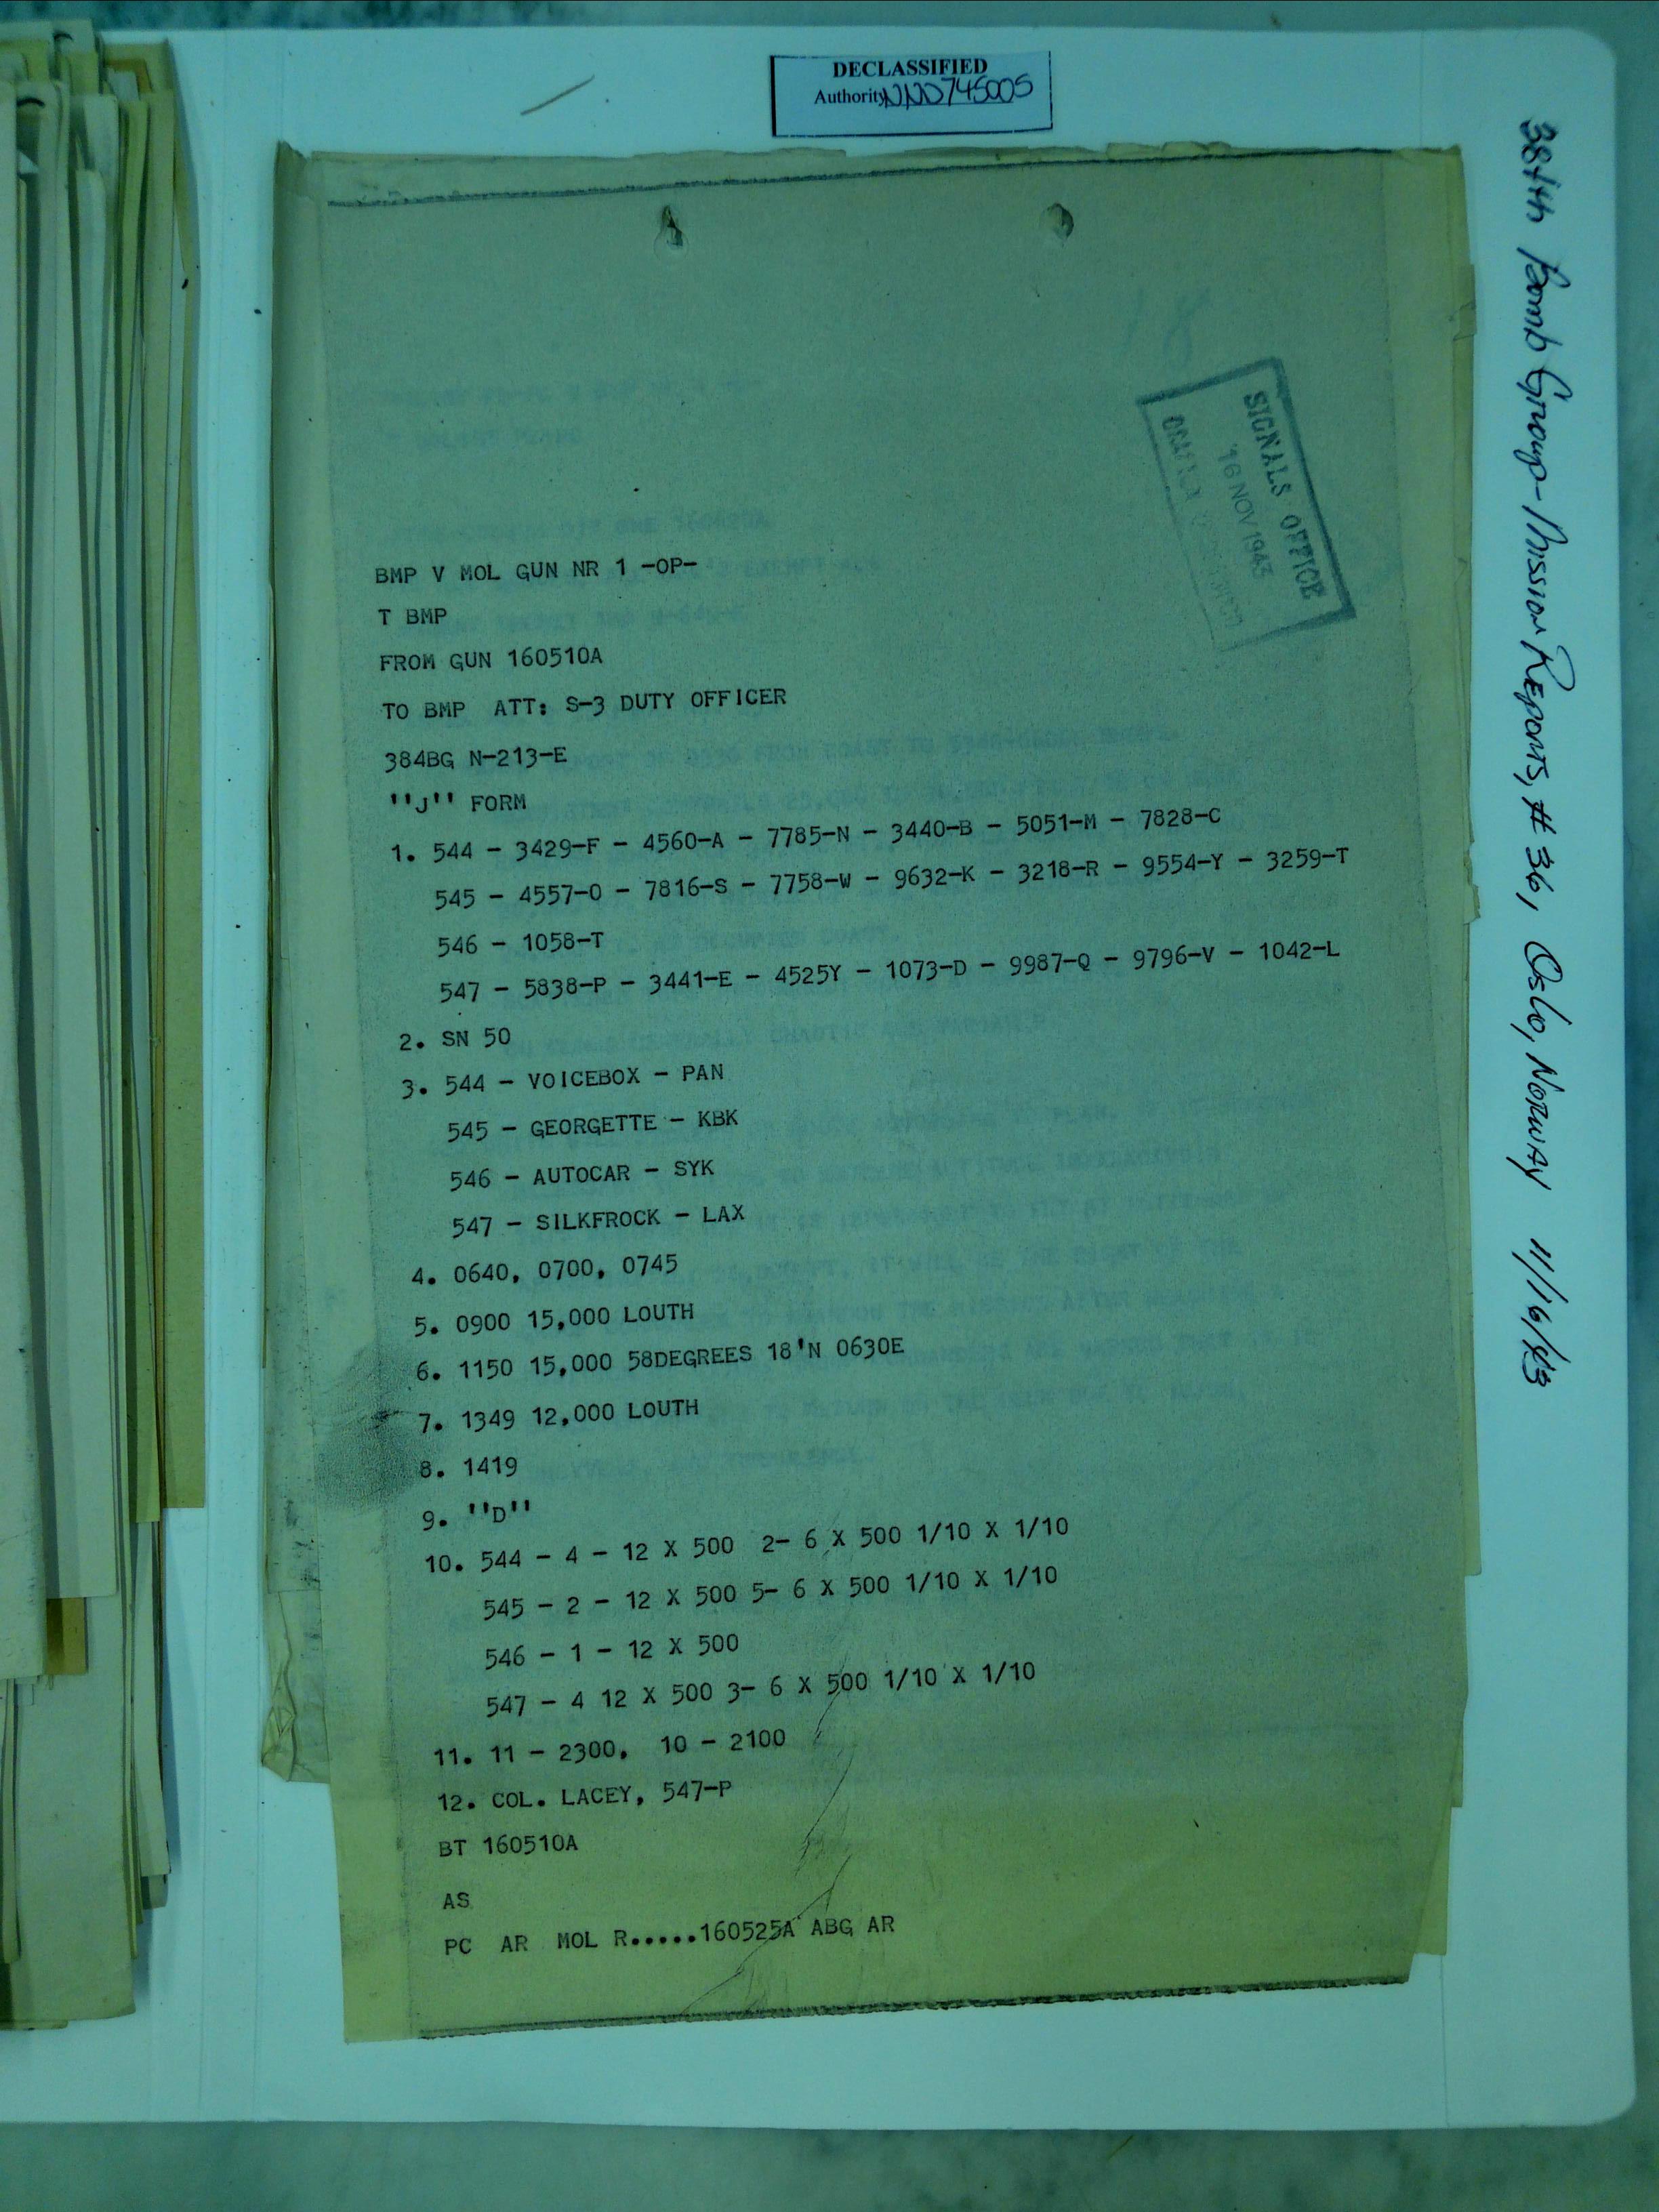 DECLASSIFIED
Authority NND745005
384th Bomb Group-Mission Reports, #36, Oslo, Norway 11/16/43
SIGNALS OFFICE
16 NOV 1943
BMP V MOL GUN NR 1 -OP-
T BMP
FROM GUN 160510A
TO BMP ATT: S-3 DUTY OFFICER
384BG N-213-E
''J'' FORM
1. 544 - 3429-F - 4560-A - 7785-N - 3440-B - 5051-M - 7828-C
545 - 4557-O - 7816-S - 7758-W - 9632-K - 3218-R - 9554-Y - 3259-T
546 - 1058-T
547 - 5838-P - 3441-E - 4525Y - 1073-D - 9987-Q - 9796-V - 1042-L
2. SN 50
3. 544 - VOICEBOX - PAN
545 - GEORGETTE - KBK
546 - AUTOCAR - SYK
547 - SILKFROCK - LAX
4. 0640, 0700, 0745
5. 0900 15,000 LOUTH
6. 1150 15,000 58DEGREES 18'N 0630E
7. 1349 12,000 LOUTH
8. 1419
9. ''D''
10. 544 - 4 - 12 X 500 2- 6 X 500 1/10 X 1/10
545 - 2 - 12 X 500 5- 6 X 500 1/10 X 1/10
546 - 1 - 12 X 500
547 - 4 12 X 500 3- 6 X 500 1/10 X 1/10
11. 11 - 2300, 10 - 2100
12. COL. LACEY, 547-P
BT 160510A
AS
PC AR MOL R.....160525A ABG AR